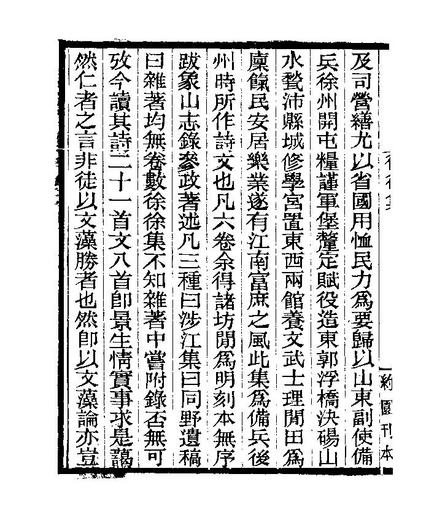 及司營繕尤以省國用恤民力為要歸以山東副使備
兵徐州開屯糧謹軍堡釐定賦役造東郭浮橋決碭山
水甃沛縣城修學宮置東西兩館養文武士理閒田為
廩餼民安居樂業遂有江南富庶之風此集為備兵後
州時所作詩文也凡六卷余得諸坊閒為明刻本無序
跋象山志錄參政著述凡三種曰涉江集曰同野遺稿
曰雜著均無卷數徐徐集不知雜著中嘗附錄否無可
攷今讀其詩二十一首文八首卽景生情實事求是藹
然仁者之言非徒以文藻勝者也然卽以文藻論亦豈
約園刊本